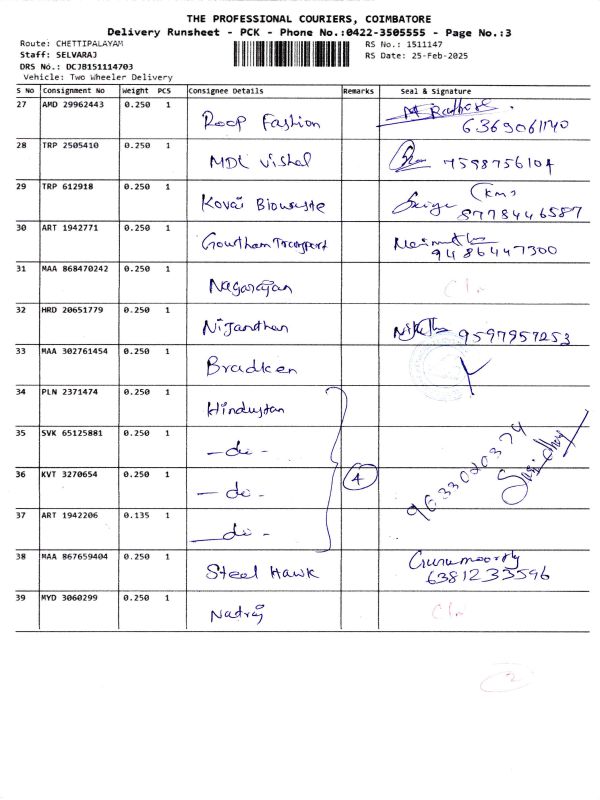 THE PROFESSIONAL COURIERS, COIMBATORE
Delivery Runsheet - PCK - Phone No.:0422-3505555 - Page No.:3
Route: CHETTIPALAYAM
Staff: SELVARAJ
DRS No.: DCJB151114703
Vehicle: Two Wheeler Delivery
RS No.: 1511147
RS Date: 25-Feb-2025
S No Consignment No Weight PCS Consignee Details Remarks Seal & Signature
27 AMD 29962443 0.250 1 Roop Fashion
6369061140
28 TRP 2505410 0.250 1 MDL Vishal 7598756104
29 TRP 612918 0.250 1 Kovai Biowaste
8778446587
30 ART 1942771 0.250 1 Gowtham Transport
9486447300
31 MAA 868470242 0.250 1 Nagarajan
32 HRD 20651779 0.250 1 Nijanthan 9597957253
33 MAA 302761454 0.250 1 Bradken
34 PLN 2371474 0.250 1 Hindustan
35 SVK 65125881 0.250 1 -do-
36 KVT 3270654 0.250 1 -do- 4
9633020374
37 ART 1942206 0.135 1 -do-
38 MAA 867659404 0.250 1 Steel Hawk Gurumoorthy
6381233596
39 MYD 3060299 0.250 1 Natraj
2